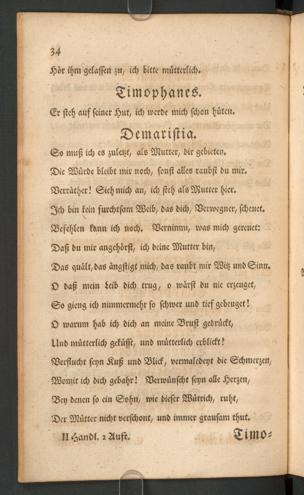 34
Hör ihm gelassen zu, ich bitte mütterlich.
Timophanes.
Er steh auf seiner Hut, ich werde mich schon hüten.
Demaristia.
So muß ich es zuletzt, als Mutter, dir gebieten.
Die Würde bleibt mir noch, sonst alles raubst du mir.
Verräther! Sieh mich an, ich steh als Mutter hier.
Ich bin kein furchtsam Weib, das dich, Verwegner, scheuet.
Befehlen kann ich noch. Vernimm, was mich gereuet:
Daß du mir angehörst, ich deine Mutter bin,
Das quält, das ängstigt mich, das raubt mir Witz und Sinn.
O daß mein Leib dich trug, o wärst du nie erzeuget,
So gieng ich nimmermehr so schwer und tief gebeuget!
O warum hab ich dich an meine Brust gedrückt,
Und mütterlich geküßt, und mütterlich erblickt?
Verflucht seyn Kuß und Blick, vermaledeyt die Schmerzen,
Womit ich dich gebahr! Verwünscht seyn alle Herzen,
Bey denen so ein Sohn, wie dieser Wütrich, ruht,
Der Mütter nicht verschont, und immer grausam thut.
II Handl. 2 Auft.
Timo-